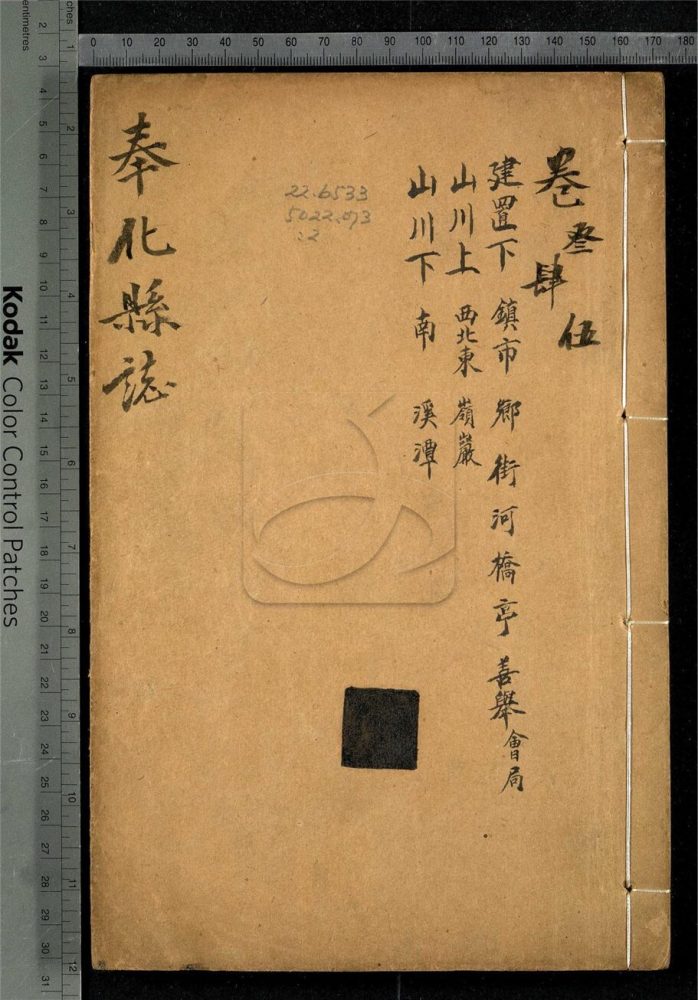 卷叁肆伍
建置下 鎮市 鄉 街 河 橋 亭 善舉 會局
山川上 西北東 嶺巖
山川下 南 溪潭
22.6533
5022.073
:2
奉化縣誌
Kodak Color Control Patches
centimetres
2 3 4 5 6 7 8 9 10 11 12 13 14 15 16 17 18 19 20 21 22 23 24 25 26 27 28 29 30 31
ches
1 2 3 4 5 6 7 8 9 10 11 12
0 10 20 30 40 50 60 70 80 90 100 110 120 130 140 150 160 170 180